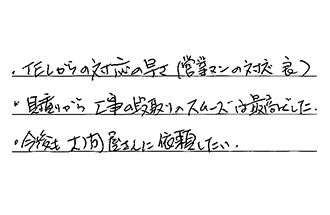 ・TELからの対応の早さ(営業マンの対応 良)
・見積りから工事の段取りのスムーズは最高でした.
・今後も 大向屋さんに依頼したい.